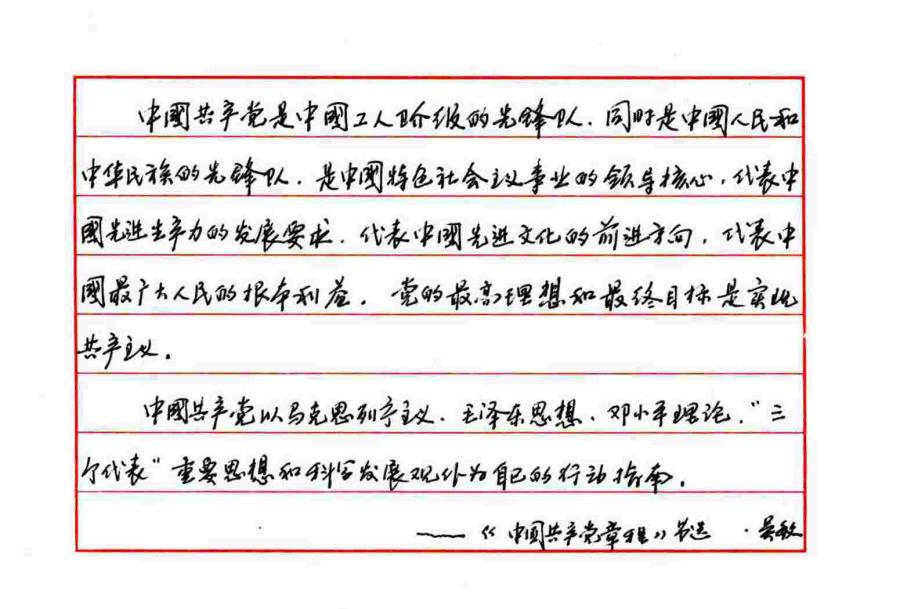 中國共产党是中國工人阶级的先锋队．同时是中國人民和
中华民族的先锋队．是中國特色社会主义事业的领导核心．代表中
國先进生产力的发展要求．代表中國先进文化的前进方向．代表中
國最广大人民的根本利益．党的最高理想和最终目标是实现
共产主义．
中國共产党以马克思列宁主义．毛泽东思想．邓小平理论．"三
个代表"重要思想和科学发展观作为自己的行动指南．
——《中國共产党章程》节选 ·吴敏